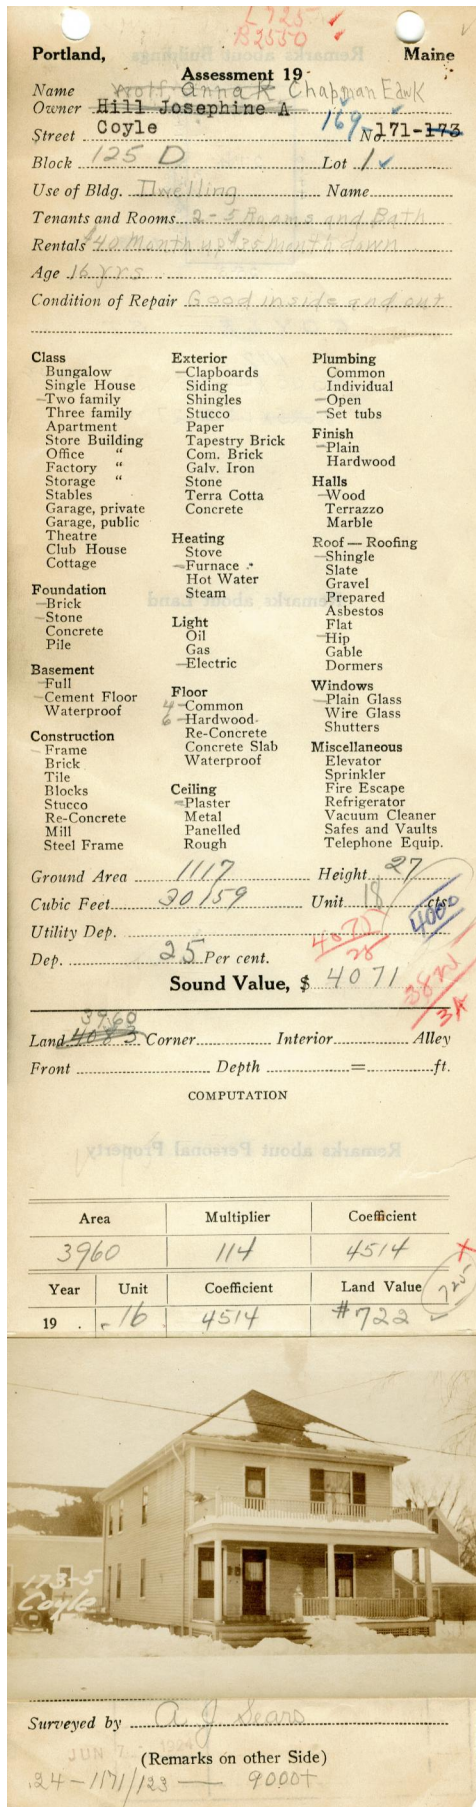 L 725
B2550
Portland, Maine
Assessment 19
Name Wolf, Anna K Chapman Edw K
Owner Hill Josephine A
Street Coyle 169 No 171-173
Block 125 D Lot 1
Use of Bldg. Dwelling Name
Tenants and Rooms 2-5 Rooms and Bath
Rentals $40 Month up $35 Month down
Age 16 yrs
Condition of Repair Good inside and out
Class
Bungalow
Single House
Two family
Three family
Apartment
Store Building
Office "
Factory "
Storage "
Stables
Garage, private
Garage, public
Theatre
Club House
Cottage
Foundation
Brick
Stone
Concrete
Pile
Basement
Full
Cement Floor
Waterproof
Construction
Frame
Brick
Tile
Blocks
Stucco
Re-Concrete
Mill
Steel Frame
Exterior
Clapboards
Siding
Shingles
Stucco
Paper
Tapestry Brick
Com. Brick
Galv. Iron
Stone
Terra Cotta
Concrete
Heating
Stove
Furnace
Hot Water
Steam
Light
Oil
Gas
Electric
Floor
4 Common
6 Hardwood
Re-Concrete
Concrete Slab
Waterproof
Ceiling
Plaster
Metal
Panelled
Rough
Plumbing
Common
Individual
Open
Set tubs
Finish
Plain
Hardwood
Halls
Wood
Terrazzo
Marble
Roof — Roofing
Shingle
Slate
Gravel
Prepared
Asbestos
Flat
Hip
Gable
Dormers
Windows
Plain Glass
Wire Glass
Shutters
Miscellaneous
Elevator
Sprinkler
Fire Escape
Refrigerator
Vacuum Cleaner
Safes and Vaults
Telephone Equip.
Ground Area 1117 Height 27
Cubic Feet 30159 Unit 18 cts.
4000
Utility Dep.
4071
28
Dep. 25 Per cent.
Sound Value, $ 4071
3960
Land 4083 Corner Interior Alley
Front Depth = ft.
COMPUTATION
Area Multiplier Coefficient
3960 114 4514
Year Unit Coefficient Land Value
725
19 .16 4514 #722
173-5
Coyle
Surveyed by A J Sears
JUN 7 - 1924
(Remarks on other Side)
24-1171/123 — 9000+